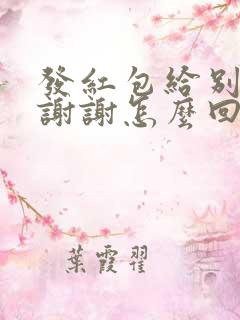 發紅包給別
謝謝怎麼回
葉霞翟